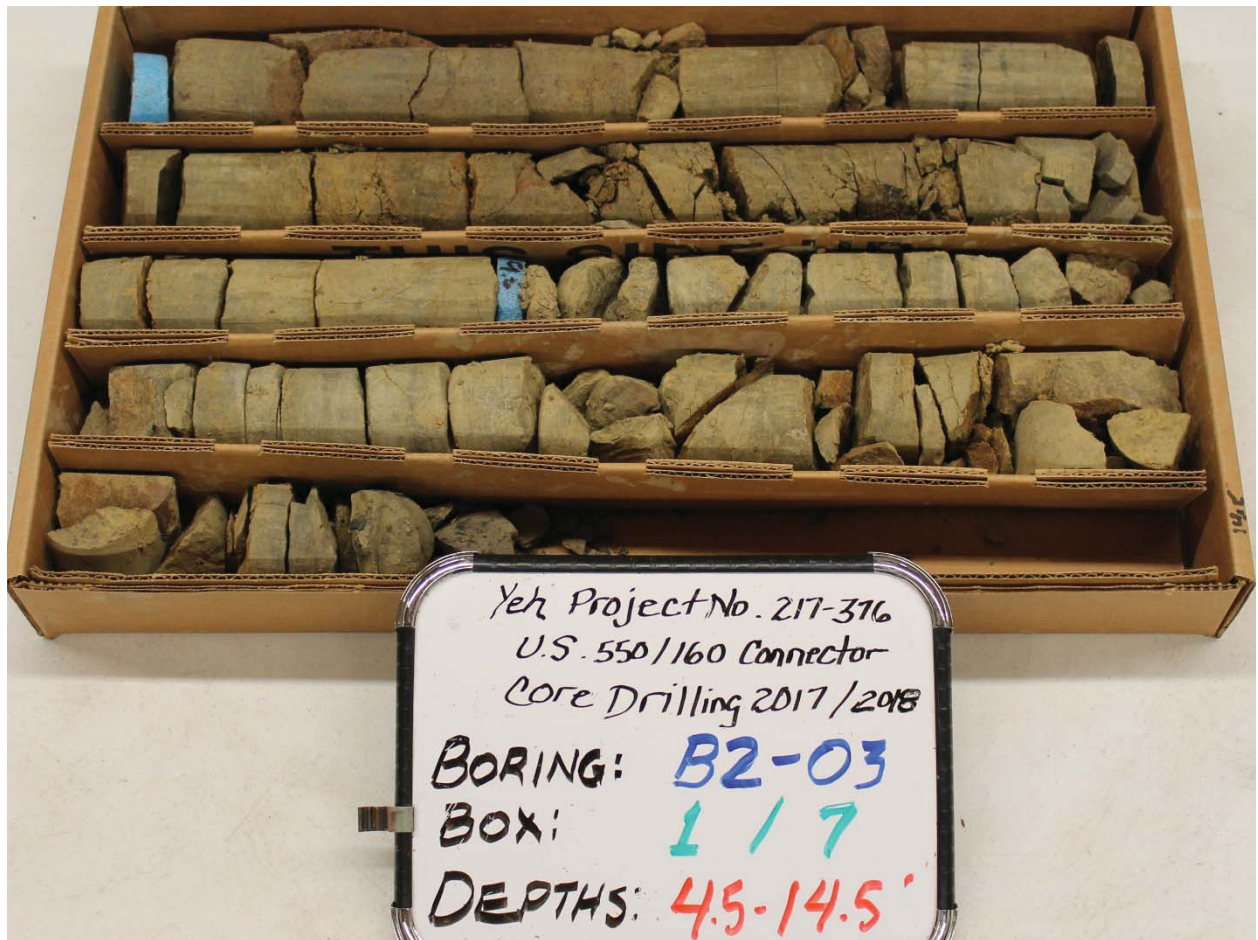 THIS SIDE UP
9.5
14.5
Yeh Project No. 217-376
U.S. 550/160 Connector
Core Drilling 2017/2018
BORING: B2-03
BOX: 1 / 7
DEPTHS: 4.5-14.5'